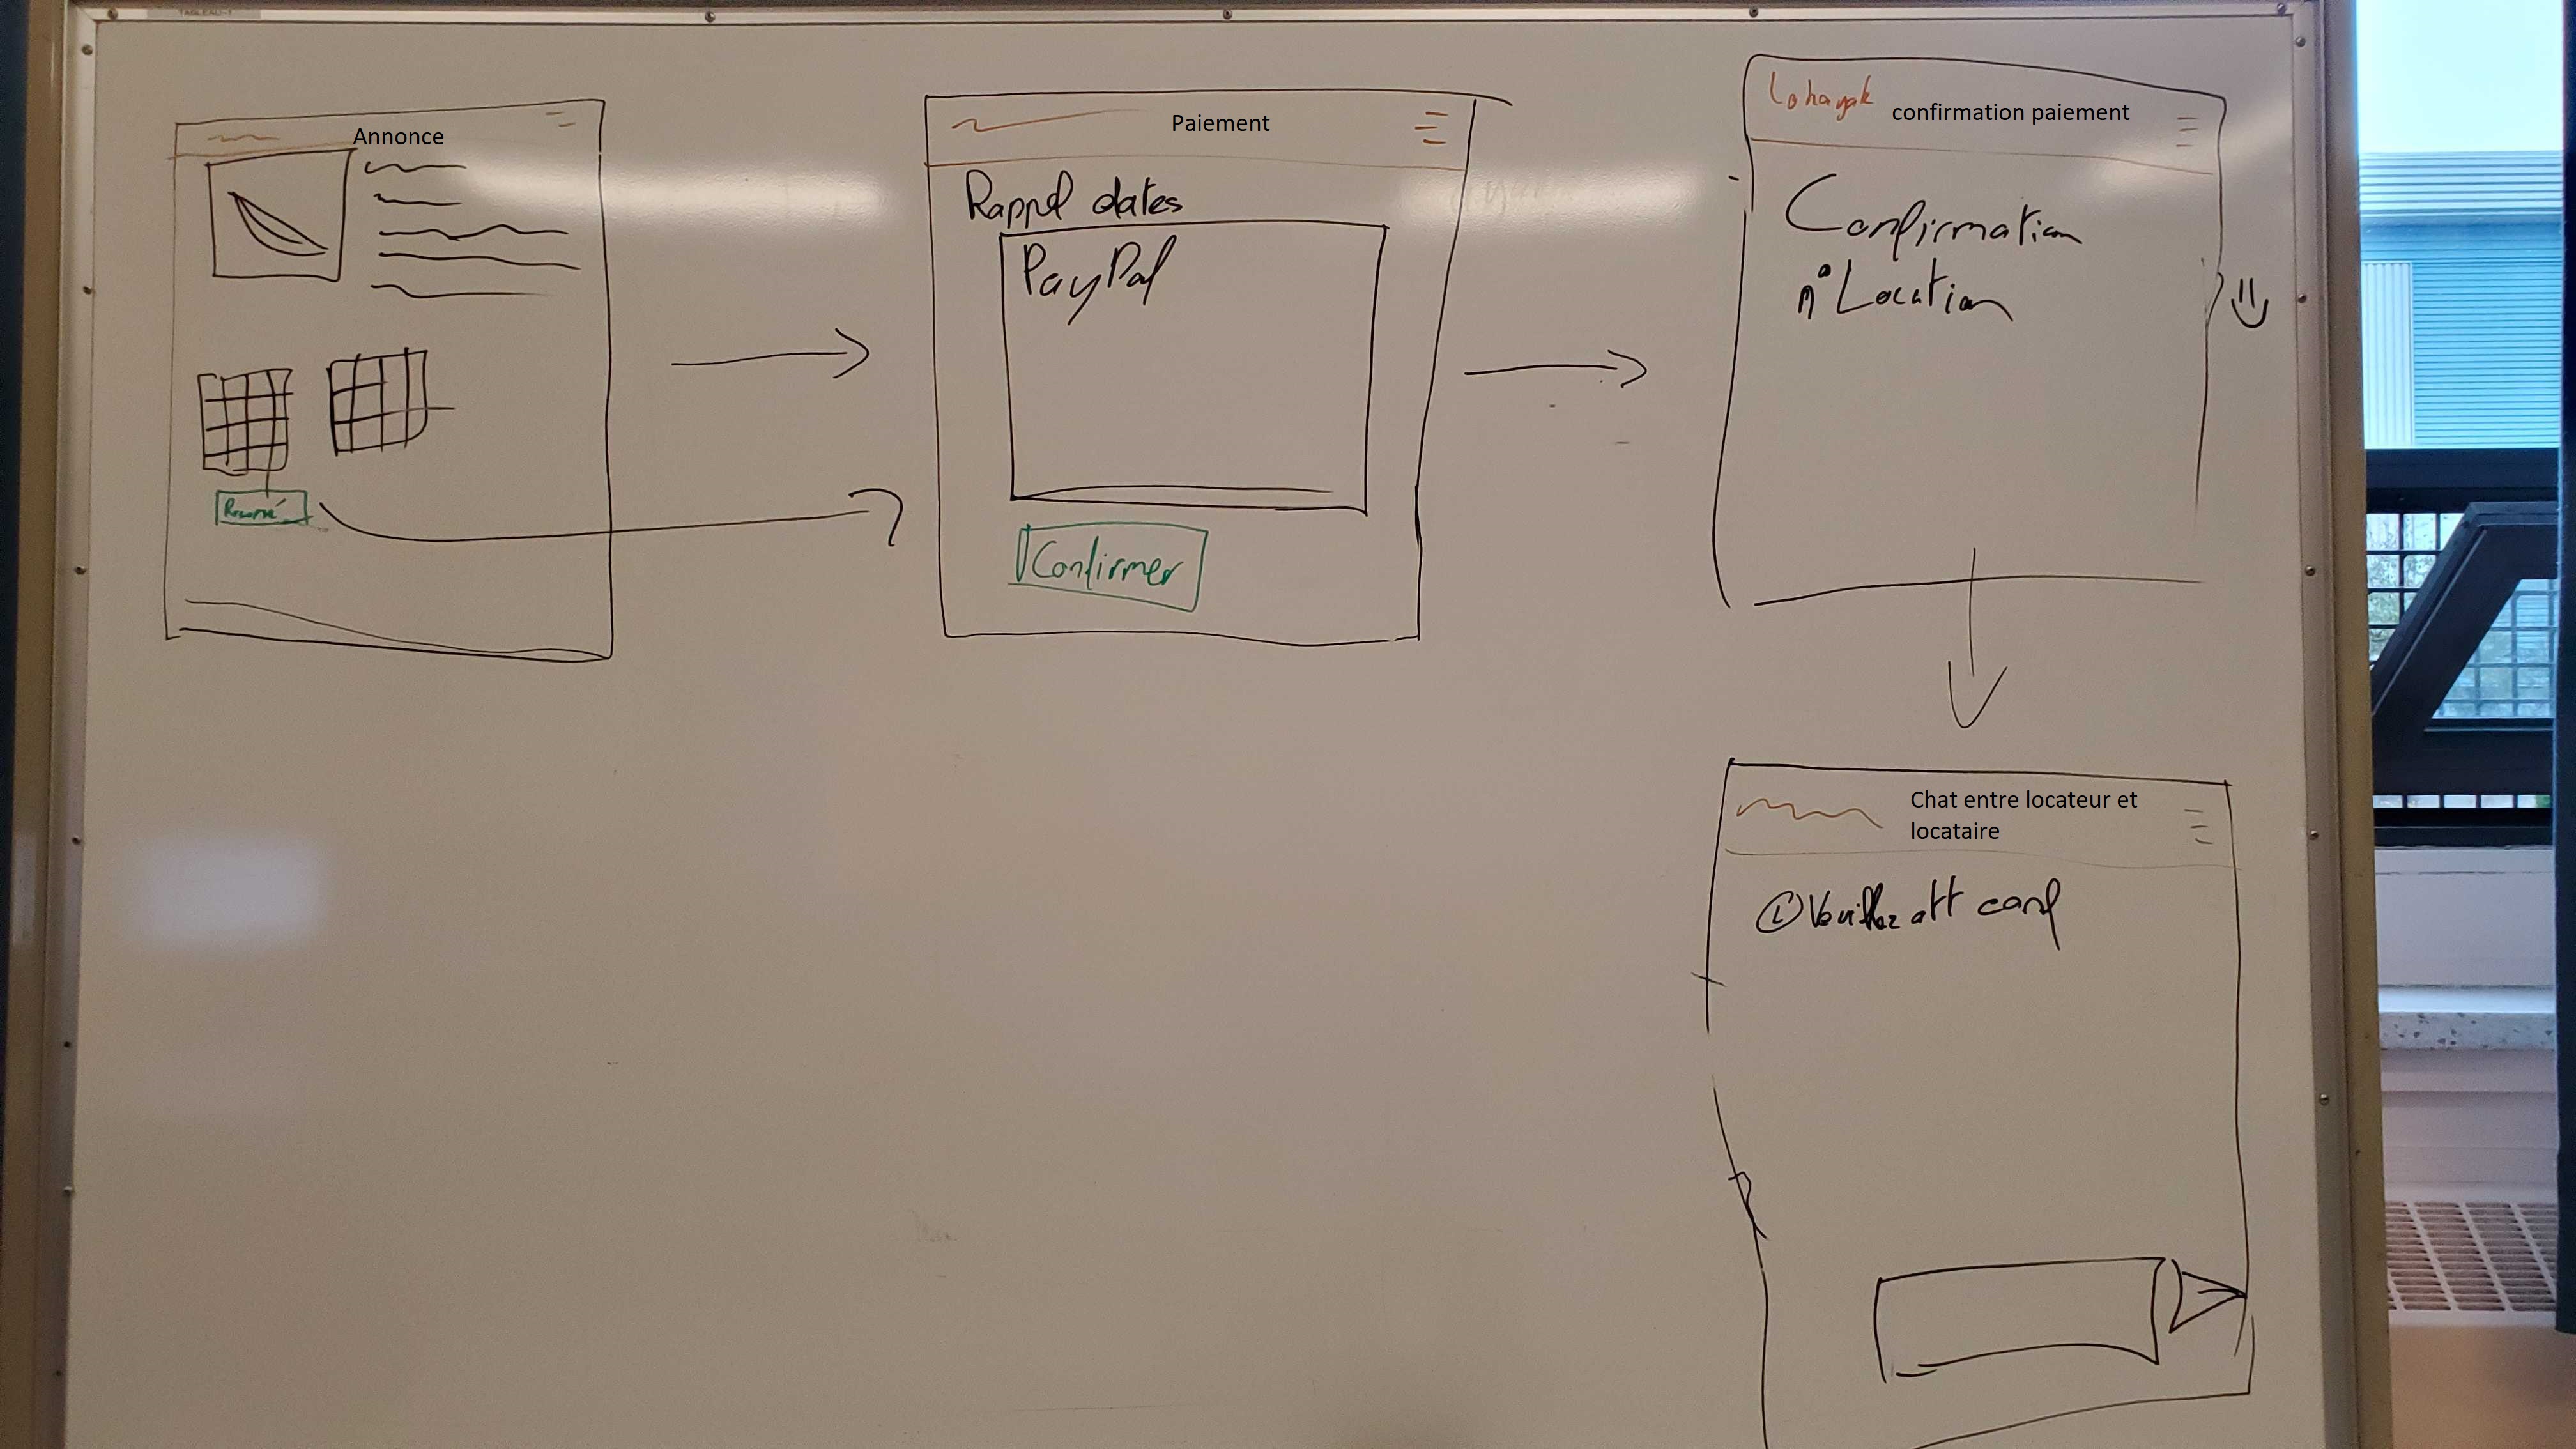 TABLEAU-1
Annonce
Paiement
Rappel dates
PayPal
Confirmer
Lohayak
confirmation paiement
Confirmation
n° Location
Chat entre locateur et
locataire
L Veuillez att conf